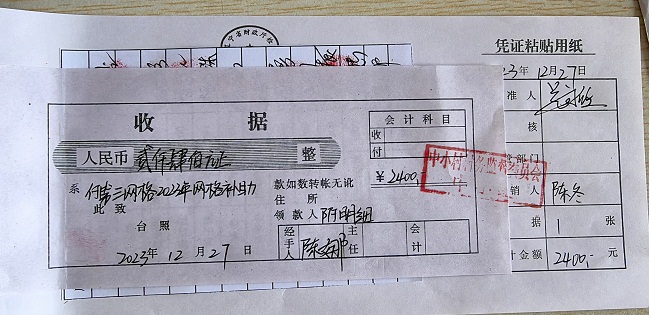 凭证粘贴用纸
23年12月27日
准人
核
部门
销人 陈冬
据 1 张
计金额 2400.-
收据
人民币 贰仟肆佰元 整
系 付第三网格2023年网格补助
此致
台照
2023年12月27日
款如数转帐无讹
住所
领款人
经手人
主任
会计
会计科目
收
付
¥2400.-
中小村村务监督委员会